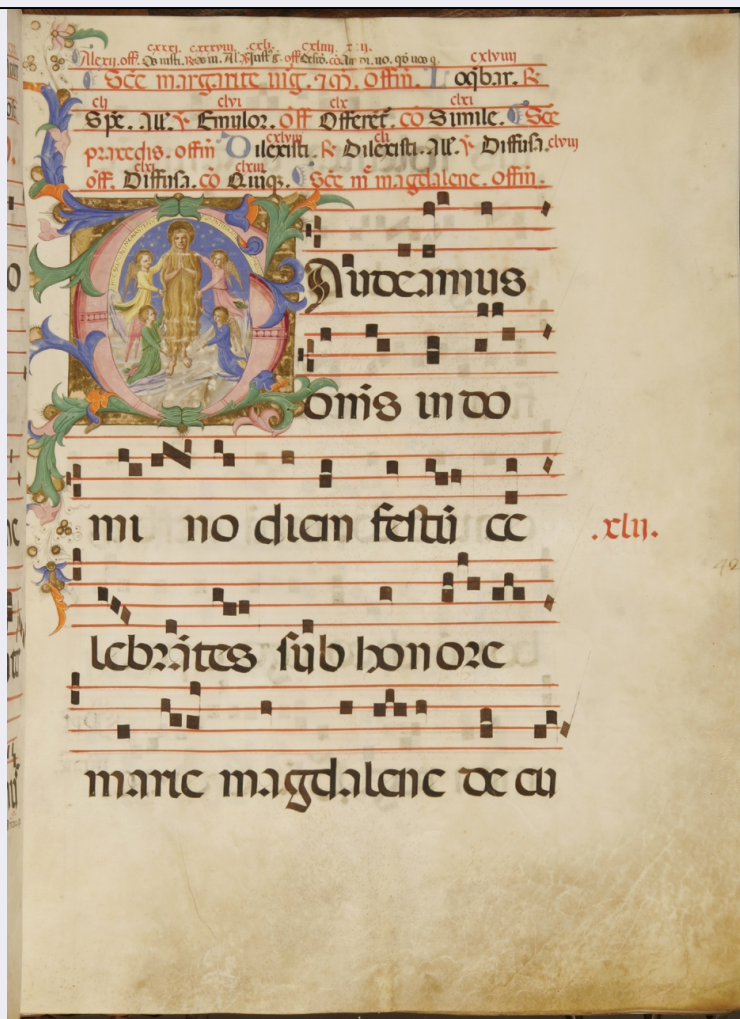 cxxxi. cxxxviii. cxli. cxliiii.
Alexii. off. cxlviiii
Sce margarite uirg. 7 m. Offm. Loqbar. R
clj clvi clx clxi
Spe. All. V Emulor. Off Offeret. co Simile. Sce
praxedis. offm Dilexisti. R Dilexisti. All. V Diffusa. clviii
off. Diffusa. co Quinq. Sce m magdalene. offm.
Gaudeamus
omis in do
mi no diem festū ce
.xlij.
42
lebrātes sub honore
marie magdalene de cu